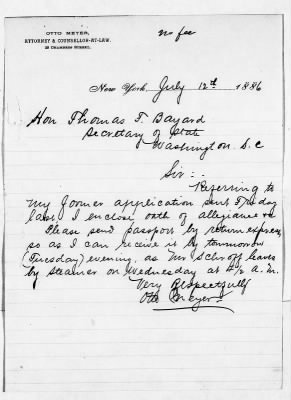 OTTO MEYER,
ATTORNEY & COUNSELLOR-AT-LAW.
28 CHAMBERS STREET.
no fee
New York, July 12th 1886
Hon Thomas F. Bayard
Secretary of State
Washington D.C
Sir:-
Referring to
my former application sent Friday
last I enclose oath of allegiance &c
Please send passport by return express
so as I can receive it by tommorrow
(Tuesday) evening, as Mr Schroff leaves
by steamer on Wednesday at 4½ a.m.
Very Respectfully
Otto Meyer